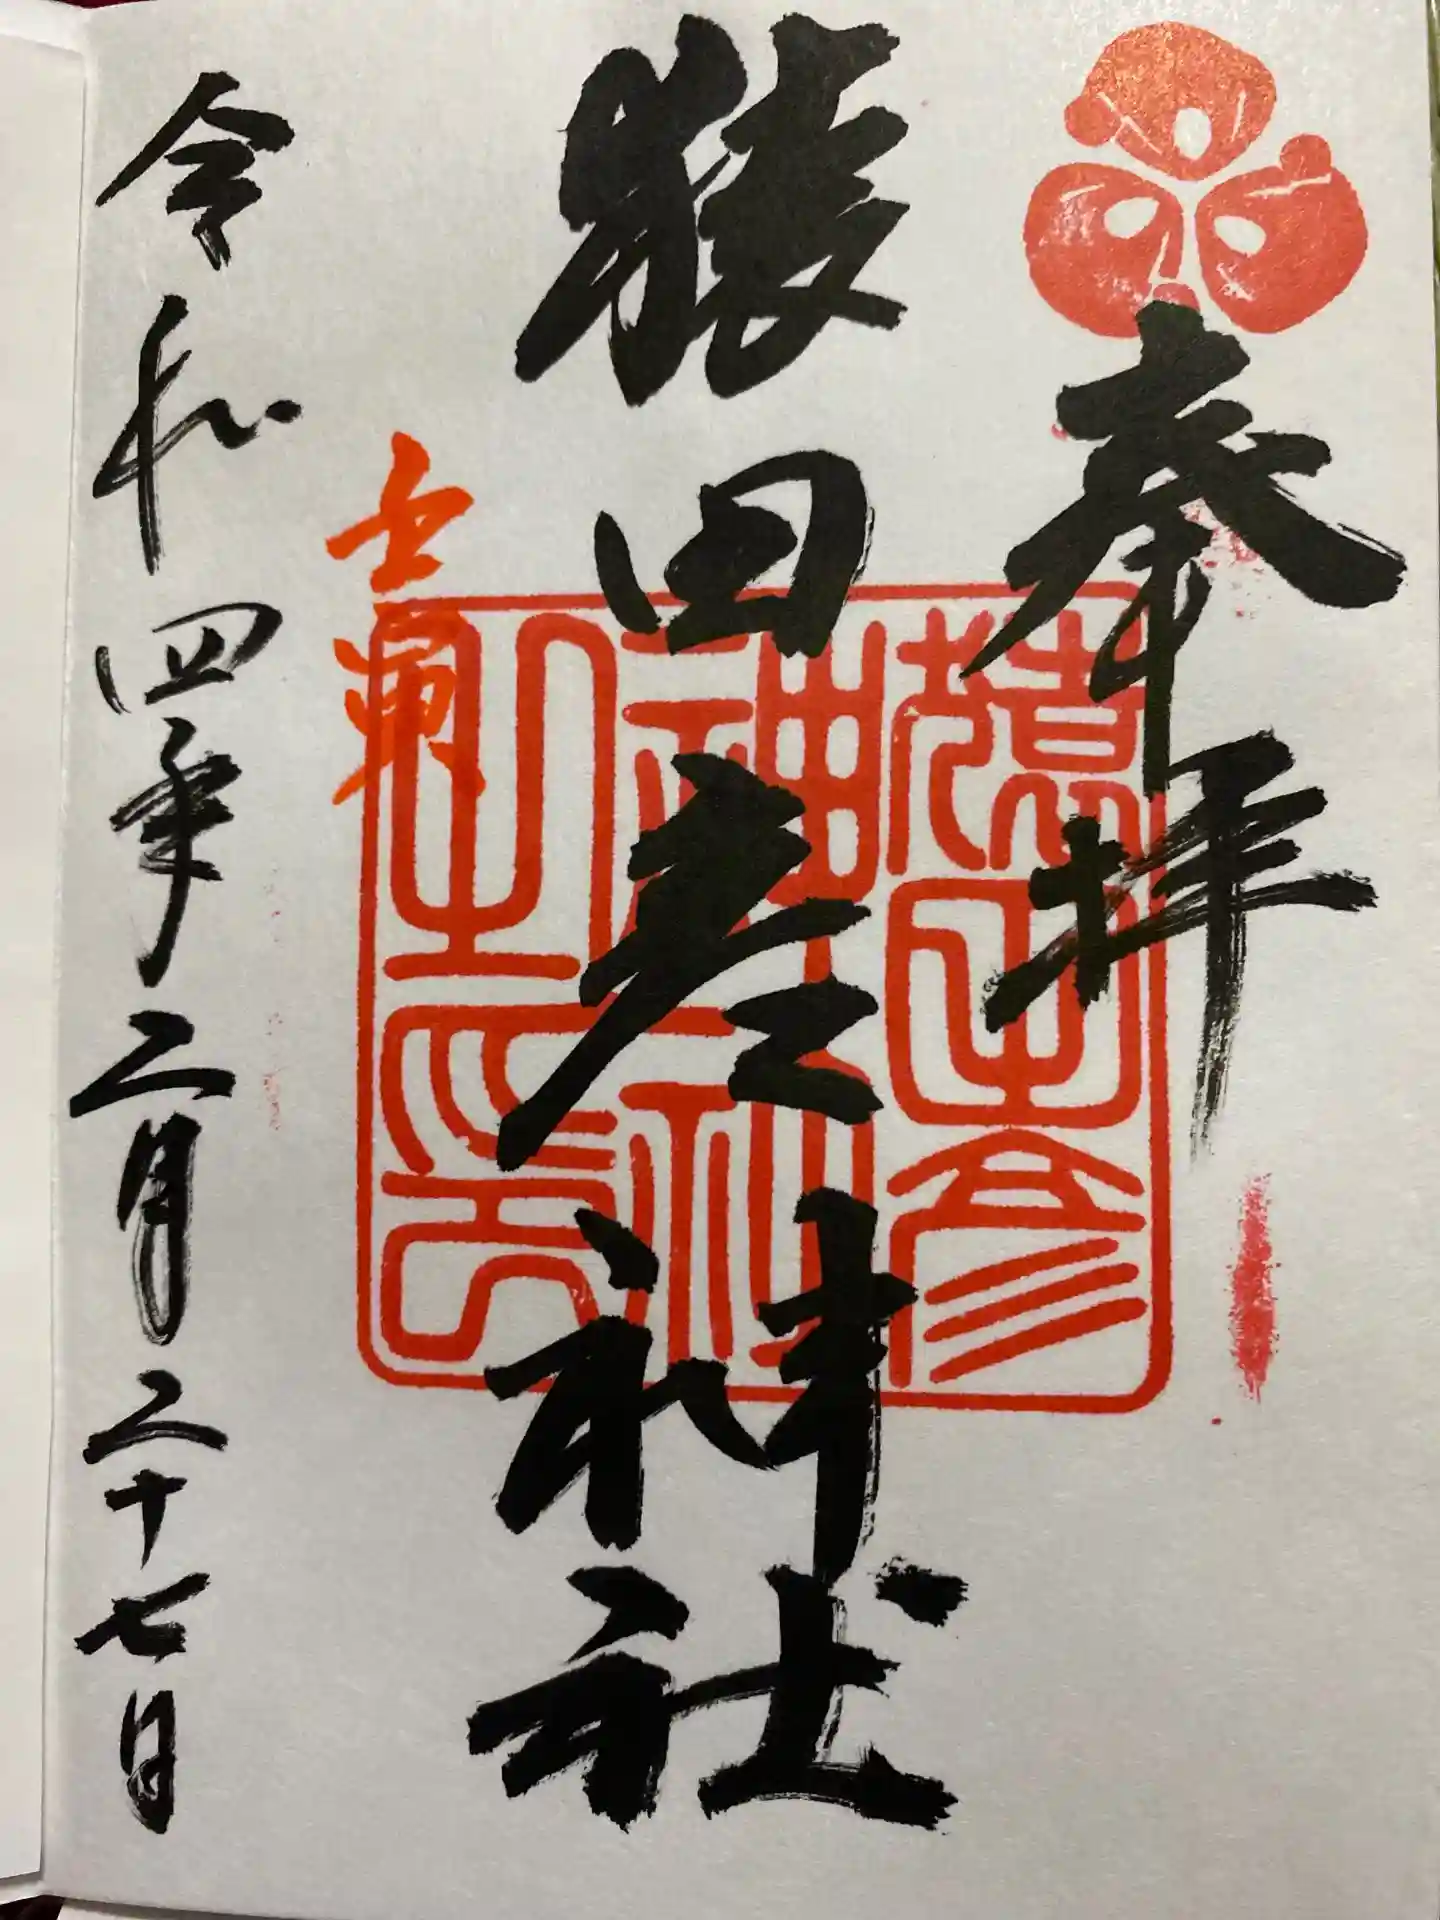 奉拝
猿田彦神社
猿田彦
神社
之印
壬寅
令和四年二月二十七日